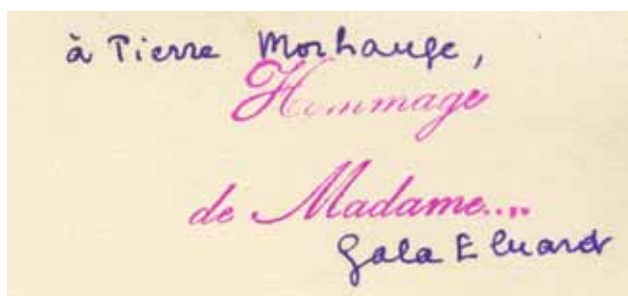 à Pierre Morhange,
Hommage
de Madame....
Gala Eluard